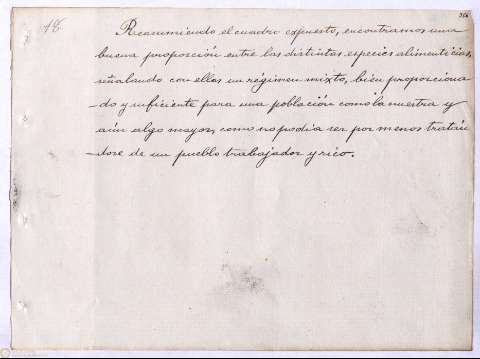 48
Reasumiendo el cuadro expuesto, encontramos una
buena proporción entre las distintas especies alimenticias,
señalando con ellas un régimen mixto, bien proporciona
-do y suficiente para una población como la nuestra y
aún algo mayor, como no podia ser por menos tratán
-dose de un pueblo trabajador y rico.